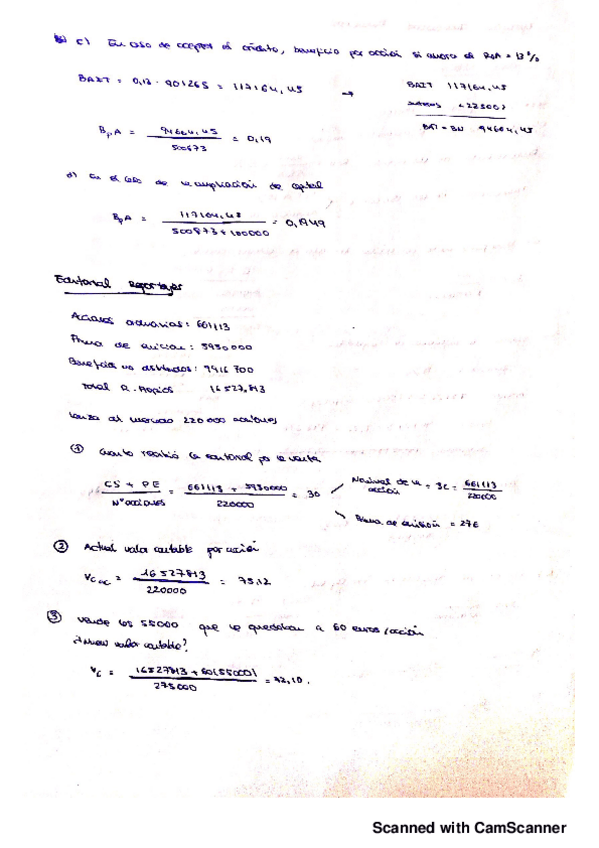 c) En caso de aceptar el crédito, beneficio por acción si ahora el ROA = 13%
BAIT = 0,13 · 901265 = 117164,45 → BAIT 117164,45
intereses <22500>
BAT = BN 94664,45
BpA = 94664,45 / 500873 = 0,19
d) En el caso de la ampliación de capital
BpA = 117164,45 / 500873 + 100000 = 0,1949
Editorial Reportajes
Acciones ordinarias: 661113
Prima de emisión: 5950000
Beneficios no distribuidos: 9916700
Total R. Propios 16527.813
lanza al mercado 220000 acciones
① Cuanto recibió la editorial por la venta
CS + PE / Nº acciones = 661113 + 5950000 / 220000 = 30
Nominal de la acción = 3€ = 661113 / 220000
Prima de emisión = 27€
② Actual valor contable por acción
Vc ac = 16527813 / 220000 = 75,12
③ Vende los 55000 que le quedaban a 60 euros/acción
¿Nuevo valor contable?
Vc = 16527813 + 60(55000) / 275000 = 72,10.
Scanned with CamScanner